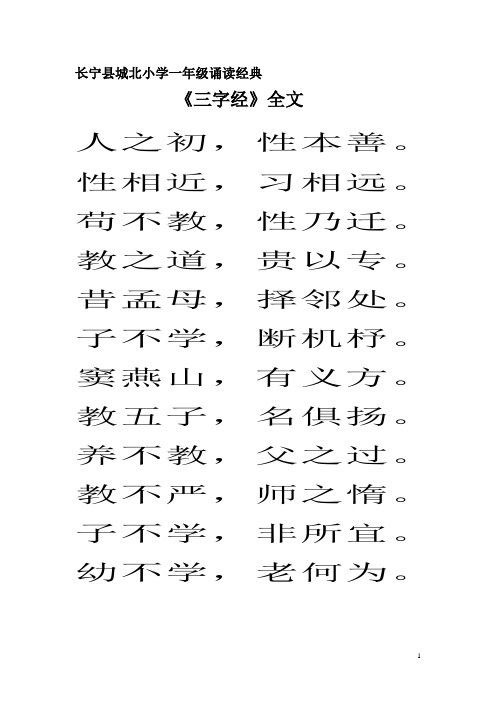 长宁县城北小学一年级诵读经典
《三字经》全文
人之初，性本善。
性相近，习相远。
苟不教，性乃迁。
教之道，贵以专。
昔孟母，择邻处。
子不学，断机杼。
窦燕山，有义方。
教五子，名俱扬。
养不教，父之过。
教不严，师之惰。
子不学，非所宜。
幼不学，老何为。
1